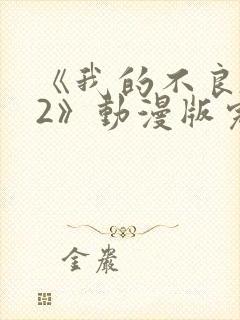 《我的不良
2》動漫版
金嚴